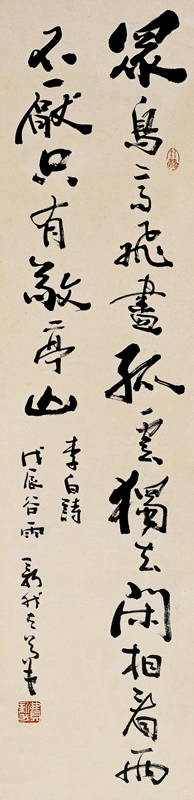 眾鳥高飛盡孤雲獨去閑相看兩
不厭只有敬亭山
李白詩
戊辰谷雨